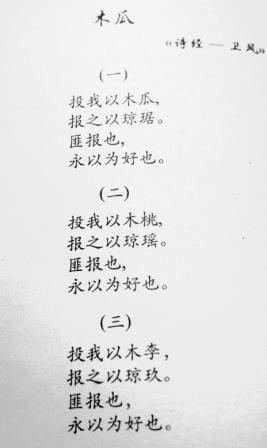 木瓜
《诗经—卫风》
(一)
投我以木瓜，
报之以琼琚。
匪报也，
永以为好也。
(二)
投我以木桃，
报之以琼瑶。
匪报也，
永以为好也。
(三)
投我以木李，
报之以琼玖。
匪报也，
永以为好也。